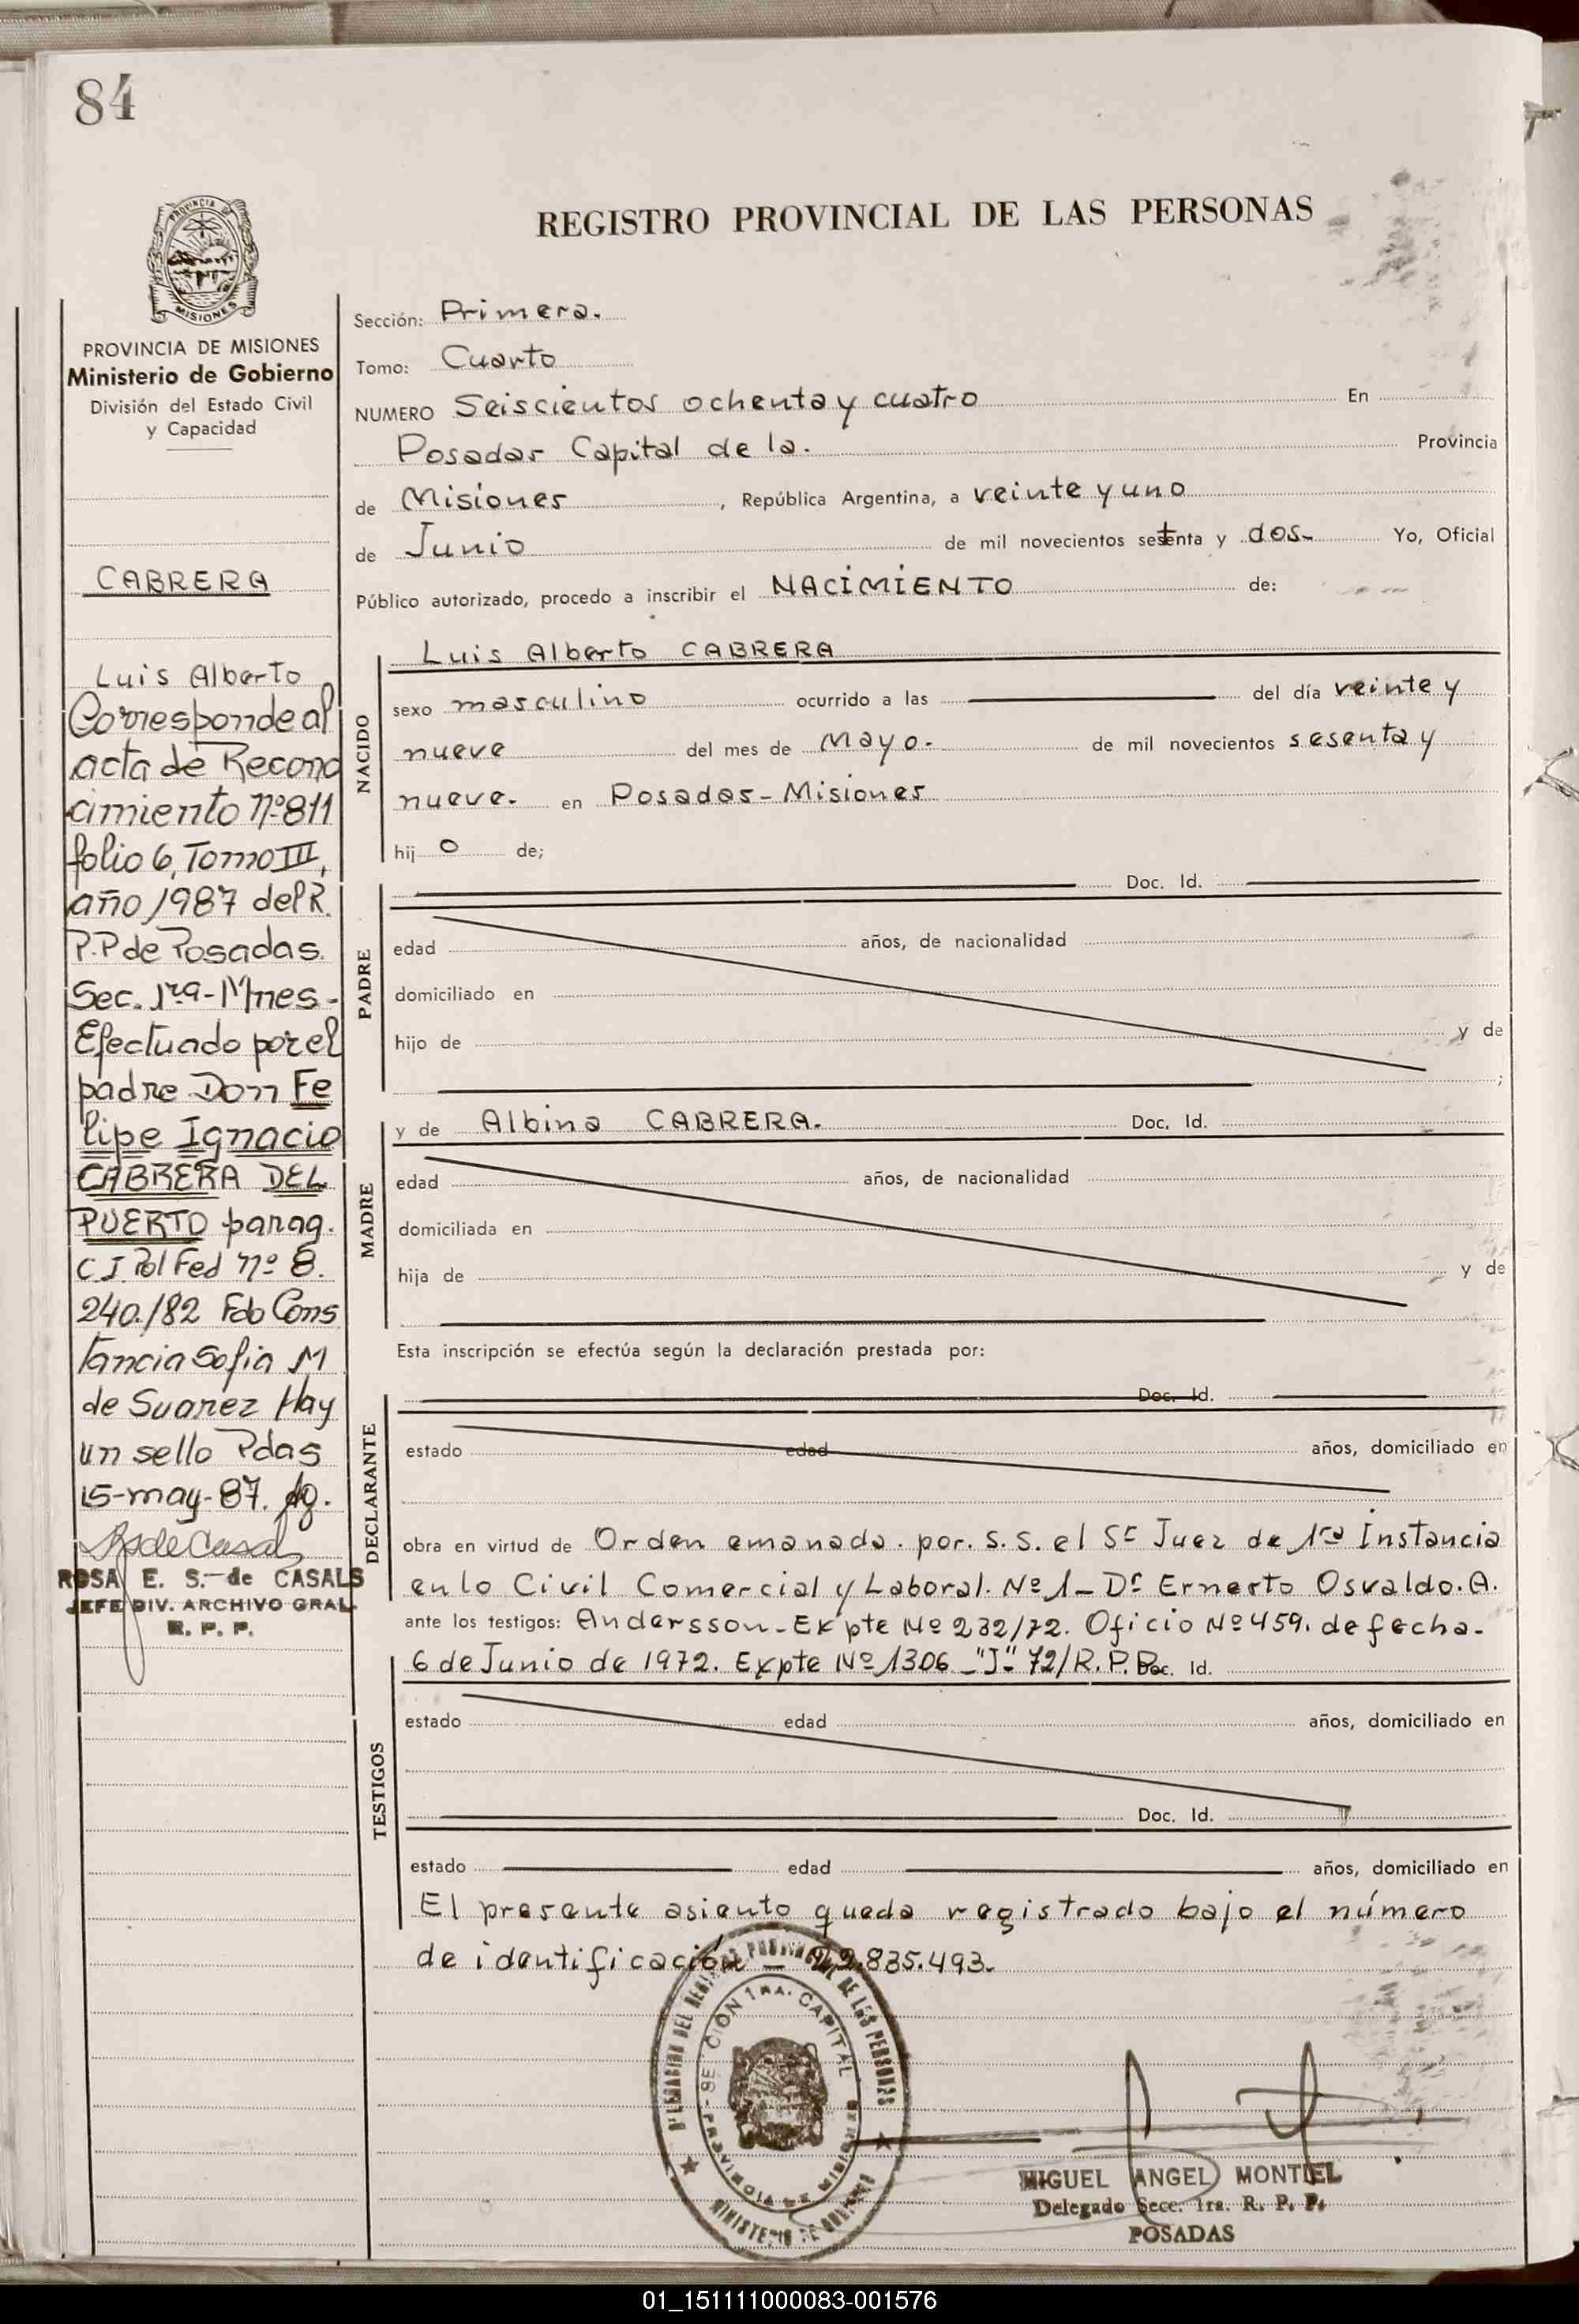 84
PROVINCIA DE
MISIONES
PROVINCIA DE MISIONES
Ministerio de Gobierno
División del Estado Civil
y Capacidad
CABRERA
Luis Alberto
Corresponde al
acta de Recono
cimiento Nº 811
folio 6, Tomo III,
año 1987 del R.
P.P de Posadas.
Sec. 1ra - Mnes -
Efectuado por el
padre Don Fe
lipe Ignacio
CABRERA DEL
PUERTO parag.
C I Pol Fed Nº 8.
240./82 Fdo Cons
tancia Sofia M
de Suarez Hay
un sello Pdas
15-may-87.
ROSA E. S. de CASALS
JEFE DIV. ARCHIVO GRAL.
R. P. P.
REGISTRO PROVINCIAL DE LAS PERSONAS
Sección: Primera.
Tomo: Cuarto
NUMERO Seiscientos ochenta y cuatro En
Posadas Capital de la. Provincia
de Misiones, República Argentina, a veinte y uno
de Junio de mil novecientos setenta y dos- Yo, Oficial
Público autorizado, procedo a inscribir el NACIMIENTO de:
NACIDO
Luis Alberto CABRERA
sexo masculino ocurrido a las del día veinte y
nueve del mes de Mayo. de mil novecientos sesenta y
nueve. en Posadas - Misiones
hij o de;
PADRE
Doc. Id.
edad años, de nacionalidad
domiciliado en
hijo de y de
;
MADRE
y de Albina CABRERA. Doc. Id.
edad años, de nacionalidad
domiciliada en
hija de y de
Esta inscripción se efectúa según la declaración prestada por:
DECLARANTE
Doc. Id.
estado edad años, domiciliado en
obra en virtud de Orden emanada. por. S.S. el Sr Juez de 1ra Instancia
en lo Civil Comercial y Laboral. Nº 1 - Dr Ernesto Osvaldo. A.
ante los testigos: Andersson - Expte Nº 232/72. Oficio Nº 459. de fecha.
6 de Junio de 1972. Expte Nº 1306 - "J" - 72/R.P.P. Doc. Id.
TESTIGOS
estado edad años, domiciliado en
Doc. Id.
estado edad años, domiciliado en
El presente asiento queda registrado bajo el número
de identificación - 22.835.493.
DELEGACION DEL REGISTRO PROVINCIAL DE LAS PERSONAS
SECCION 1RA. CAPITAL
PROVINCIA DE MISIONES
MINISTERIO DE GOBIERNO
MIGUEL ANGEL MONTIEL
Delegado Secc. 1ra. R. P. P.
POSADAS
01_151111000083-001576